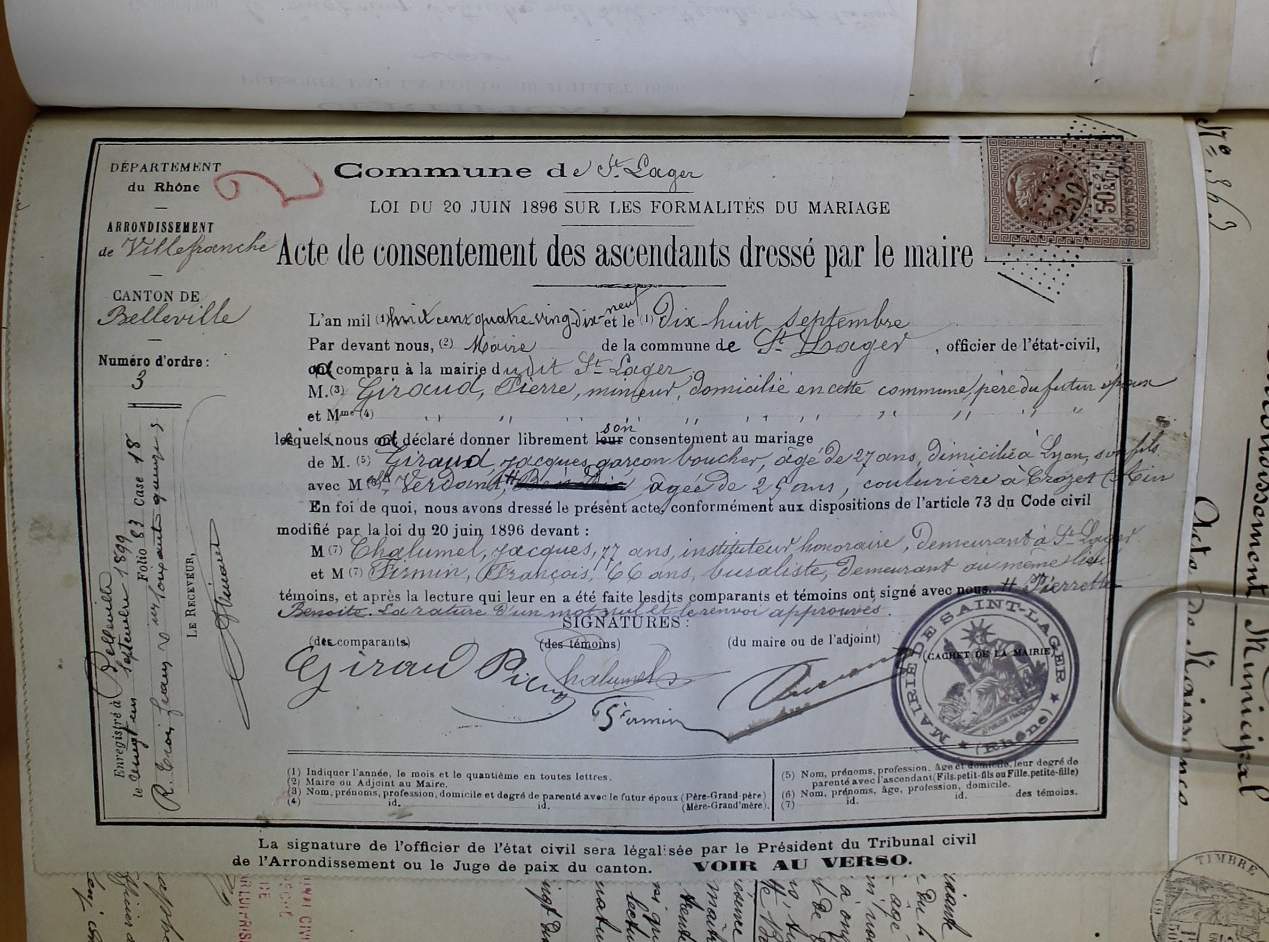 DÉPARTEMENT
du Rhône
ARRONDISSEMENT
de Villefranche
CANTON DE
Belleville
Numéro d'ordre :
3
Enregistré à Belleville
le vingt un Septembre 1899
Folio 83 Case 18
LE RECEVEUR,
Commune de St Lager
LOI DU 20 JUIN 1896 SUR LES FORMALITÉS DU MARIAGE
Acte de consentement des ascendants dressé par le maire
L'an mil (1) huit cent quatre vingt dix neuf et le (1) Dix huit septembre
Par devant nous, (2) Maire de la commune de St Lager, officier de l'état-civil,
a comparu à la mairie dudit St Lager,
M. (3) Giraud, Pierre, mineur, domicilié en cette commune, père du futur époux
et Mme (4) " " " " " " " " " "
lequel nous a déclaré donner librement leur son consentement au mariage
de M. (5) Giraud, Jacques, garçon boucher, âgé de 27 ans, domicilié à Lyon, son fils
avec M (6) âgée de 25 ans, couturière à Crozet (Ain
En foi de quoi, nous avons dressé le présent acte, conformément aux dispositions de l'article 73 du Code civil
modifié par la loi du 20 juin 1896 devant :
M (7) Chalumel, Jacques, 77 ans, instituteur honoraire, demeurant à St Lager
et M (7) Firmin, François, 66 ans, buraliste, demeurant au même lieu
témoins, et après la lecture qui leur en a été faite lesdits comparants et témoins ont signé avec nous. # Pierrette
Benoite. La rature d'un mot nul et le renvoi approuvés.
SIGNATURES :
(des comparants) (des témoins) (du maire ou de l'adjoint)
(CACHET DE LA MAIRIE)
Giraud Pierre
Chalumel
Firmin
MAIRIE DE SAINT-LAGER
(Rhône)
(1) Indiquer l'année, le mois et le quantième en toutes lettres.
(2) Maire ou Adjoint au Maire.
(3) Nom, prénoms, profession, domicile et degré de parenté avec le futur époux (Père-Grand-père)
(4) id. id. (Mère-Grand'mère).
(5) Nom, prénoms, profession, âge et domicile, leur degré de
parenté avec l'ascendant (Fils, petit-fils ou Fille, petite-fille)
(6) Nom, prénoms, âge, profession, domicile.
(7) id. id. des témoins.
La signature de l'officier de l'état civil sera légalisée par le Président du Tribunal civil
de l'Arrondissement ou le Juge de paix du canton. VOIR AU VERSO.
Acte de Naissance
TIMBRE